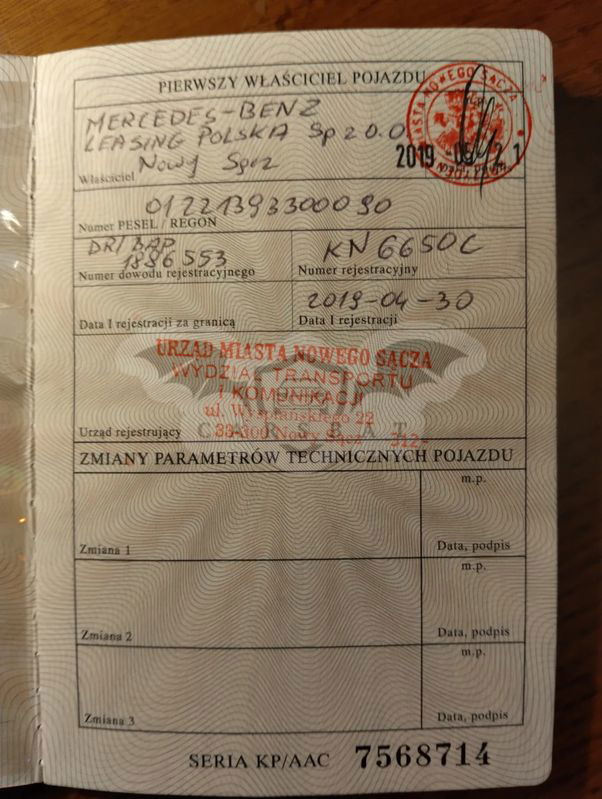 PIERWSZY WŁAŚCICIEL POJAZDU
MERCEDES-BENZ
LEASING POLSKA Sp z o.o
Nowy Sącz
Właściciel
MIASTA NOWEGO SĄCZA
2019
01221393300090
Numer PESEL / REGON
DR/BAP
1886553
Numer dowodu rejestracyjnego
KN 6650C
Numer rejestracyjny
Data I rejestracji za granicą
2019-04-30
Data I rejestracji
URZĄD MIASTA NOWEGO SĄCZA
WYDZIAŁ TRANSPORTU
I KOMUNIKACJI
ul. Wyspiańskiego 22
33-300 Nowy Sącz -312-
Urząd rejestrujący
CARSBAT
ZMIANY PARAMETRÓW TECHNICZNYCH POJAZDU
m.p.
Zmiana 1
Data, podpis
m.p.
Zmiana 2
Data, podpis
m.p.
Zmiana 3
Data, podpis
SERIA KP/AAC 7568714